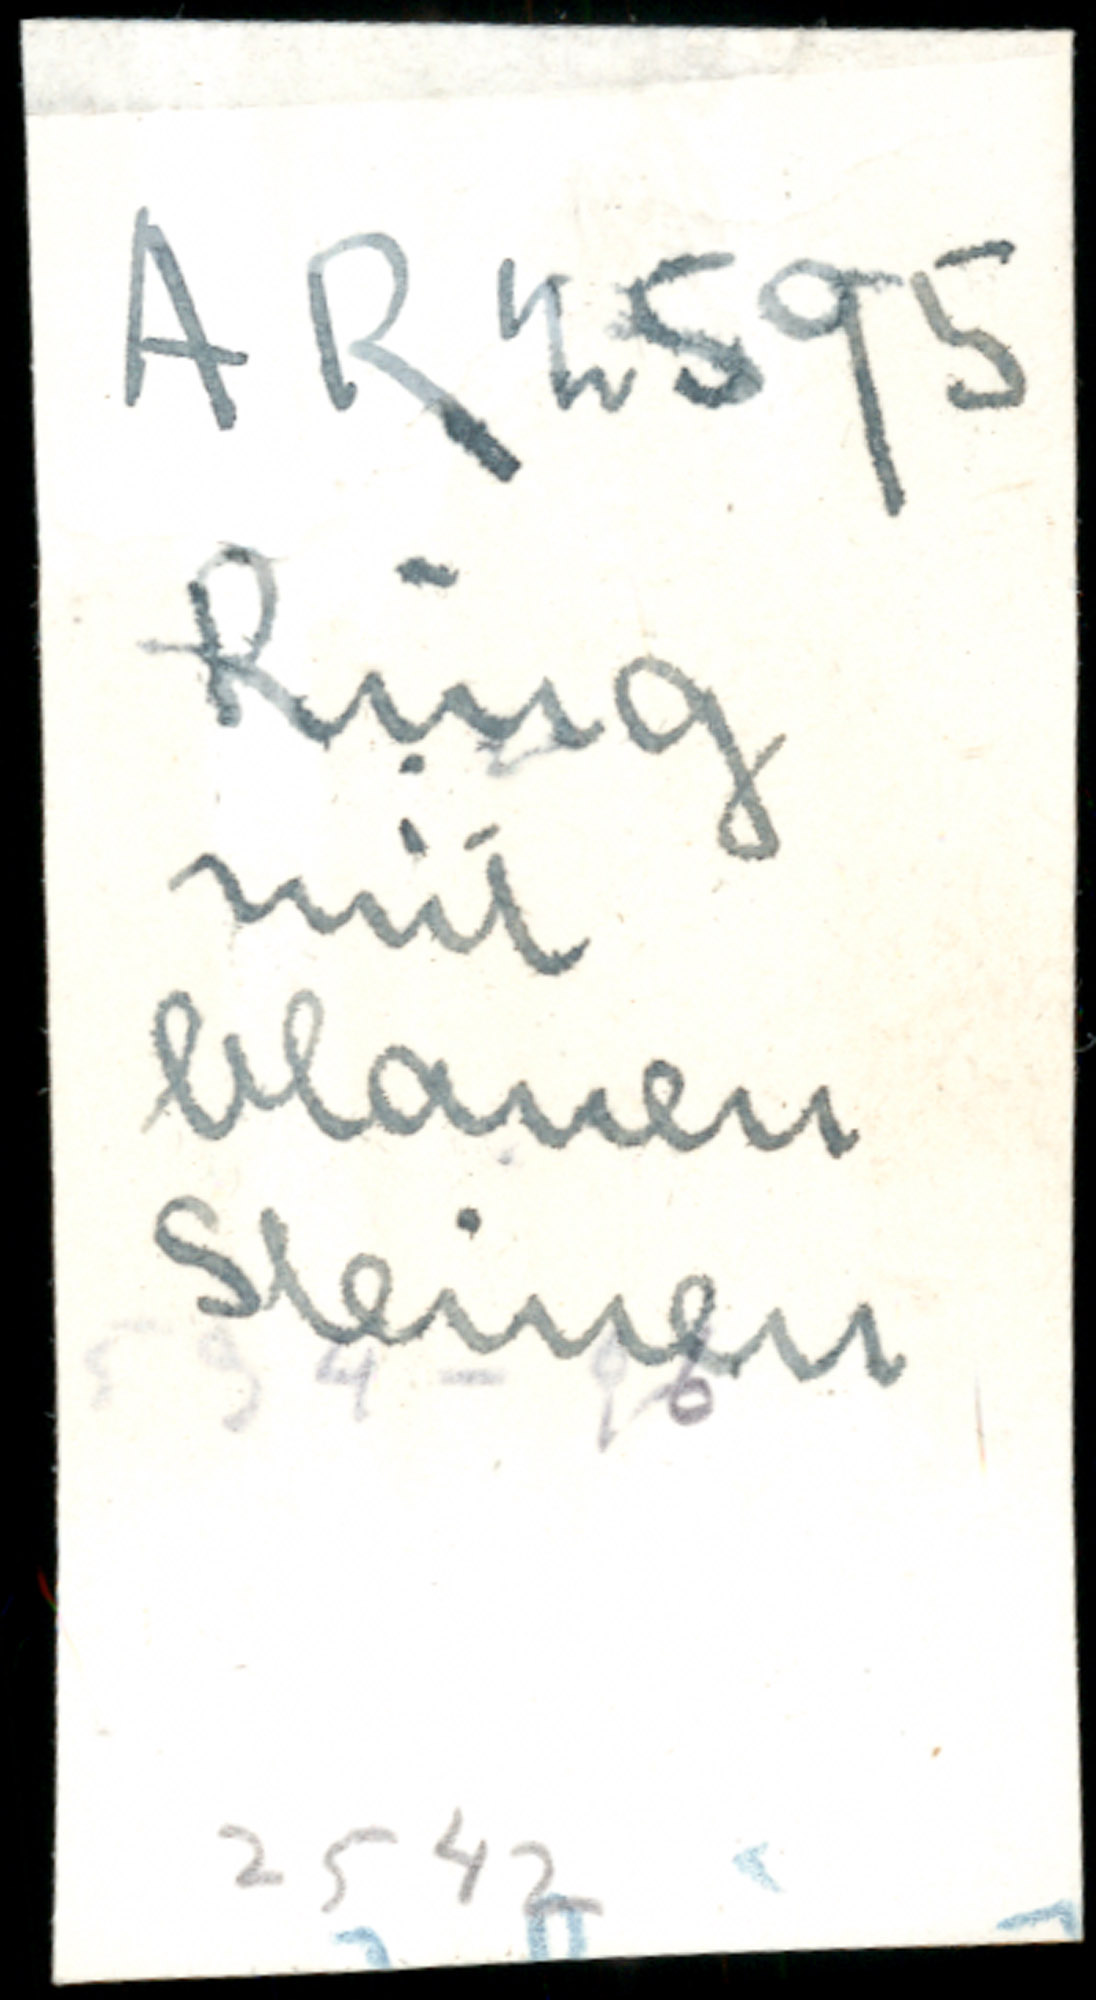 AR 4595
Ring
mit
blauen
Steinen
594-96
2542